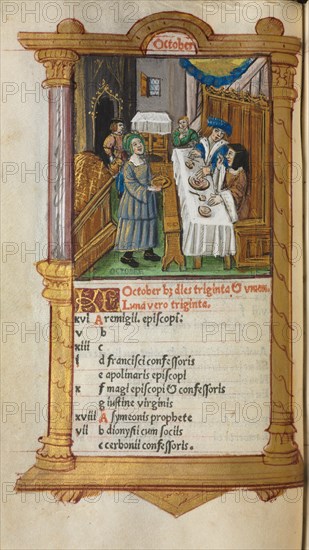 October
OCTOBER
October hz dies triginta & unum.
Luna vero triginta.
xvi A remigii. episcopi.
v b
xiii c
ii d francisci confessoris
e apolinaris episcopi
x f magi episcopi & confessoris
g iustine virginis
xviii A symeonis prophete
vii b dionysii cum sociis
c cerbonii confessoris.